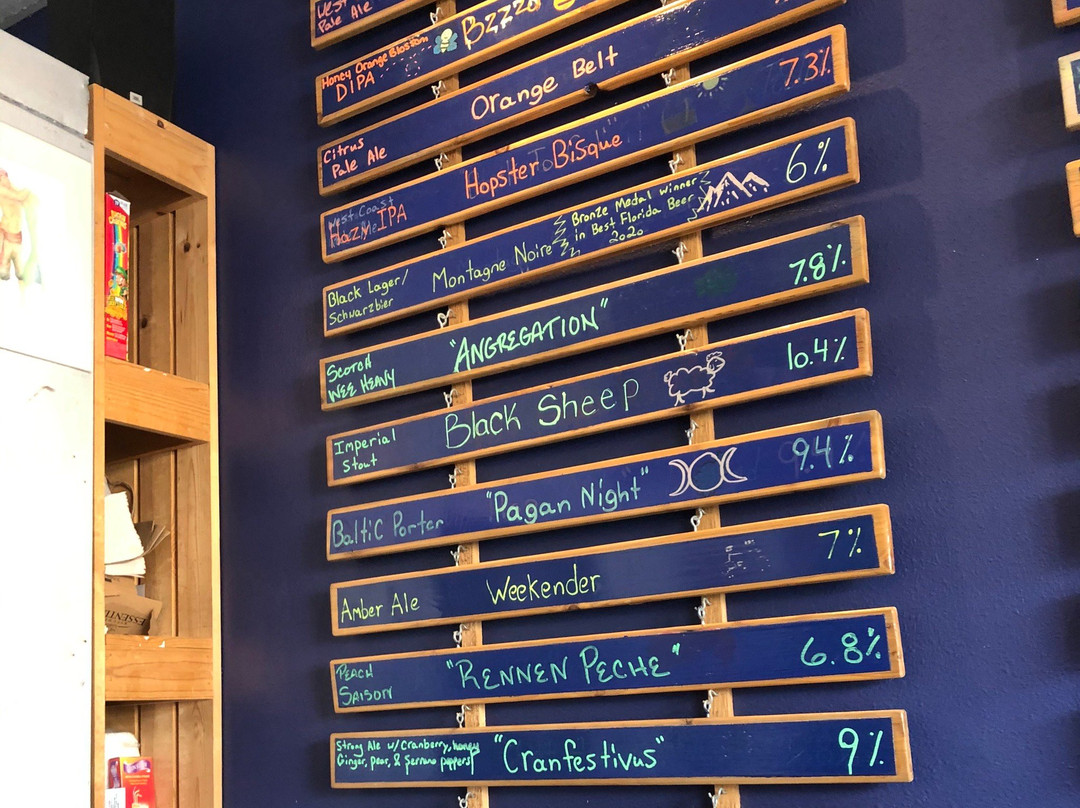 West
Pale Ale
Honey Orange Blossom
DIPA
Bzzzo
Citrus
Pale Ale
Orange Belt
Hazy IPA
Hopster Bisque
7.3%
Black Lager/
Schwarzbier
Montagne Noire
Bronze Medal winner
in Best Florida Beer
2020
6%
Scotch
Wee Heavy
"ANGREGATION"
7.8%
Imperial
Stout
Black Sheep
10.4%
Baltic Porter
"Pagan Night"
9.4%
Amber Ale
Weekender
7%
PEACH
SAISON
"RENNEN PECHE"
6.8%
Strong Ale w/Cranberry, honey
Ginger, pear, & Serrano peppers
"Cranfestivus"
9%